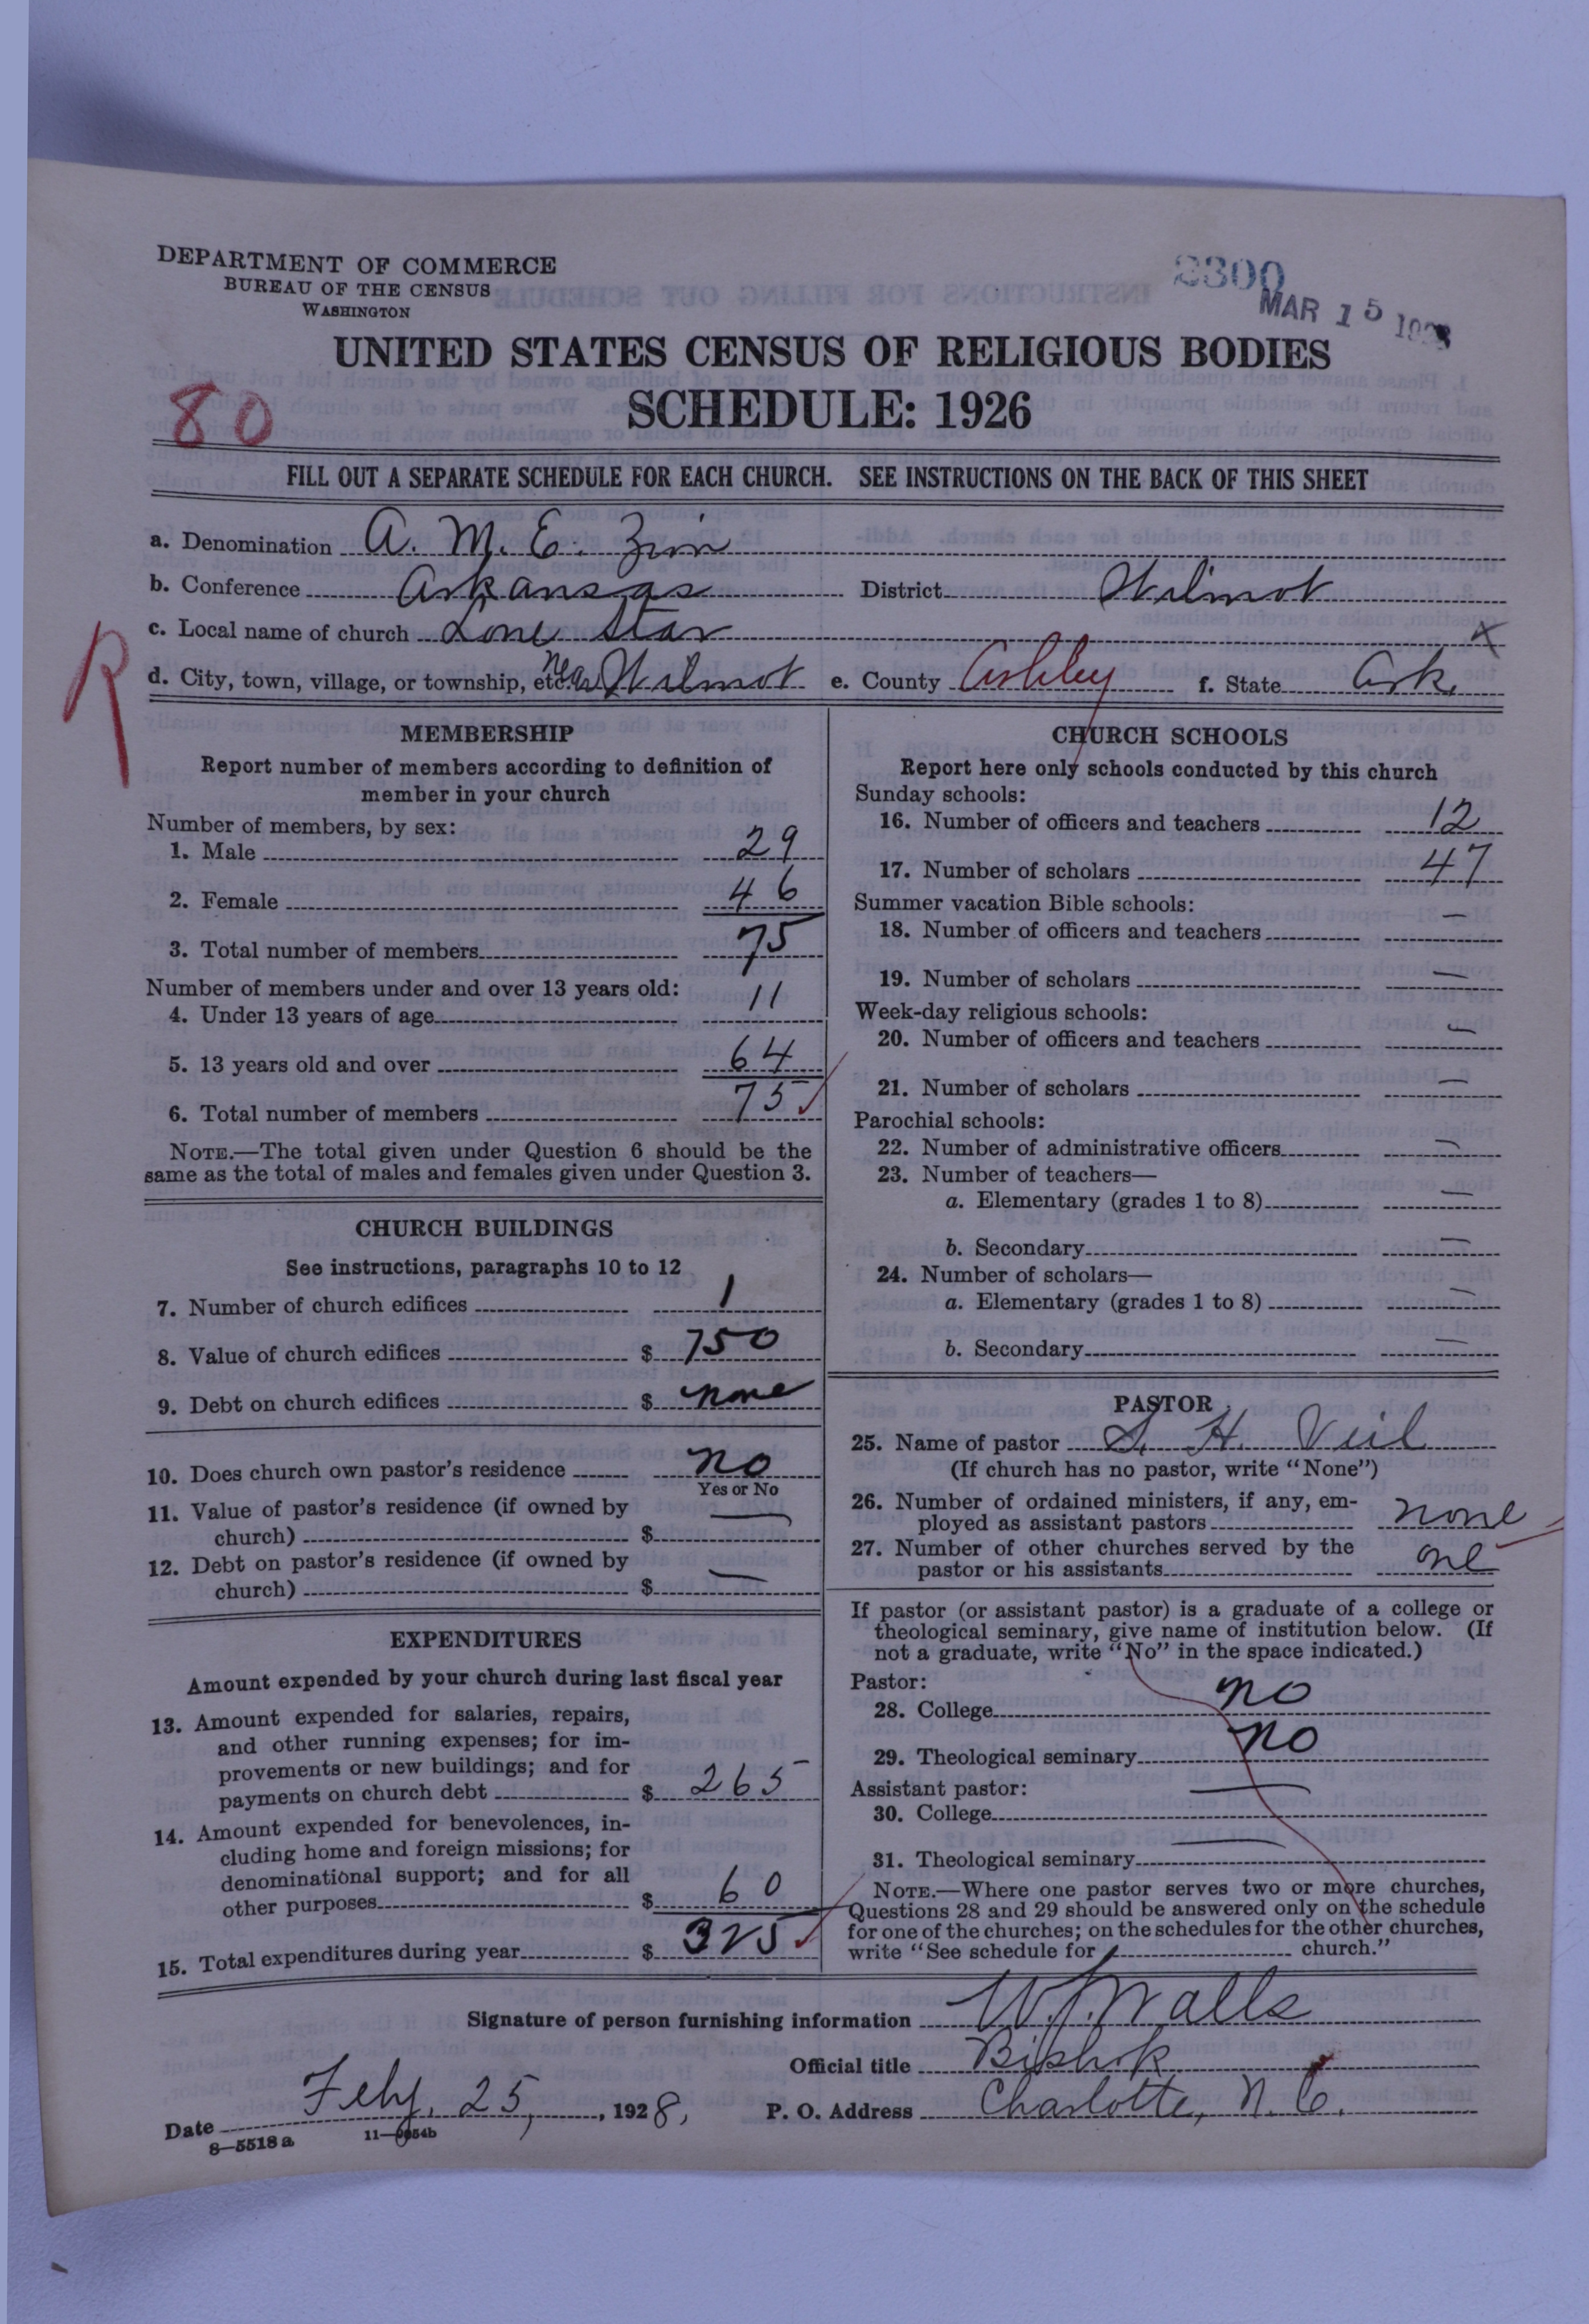 DEPARTMENT OF COMMERCE
BUREAU OF THE CENSUS
WASHINGTON
2300
MAR 15 1928
UNITED STATES CENSUS OF RELIGIOUS BODIES
SCHEDULE: 1926
80
FILL OUT A SEPARATE SCHEDULE FOR EACH CHURCH. SEE INSTRUCTIONS ON THE BACK OF THIS SHEET
a. Denomination A. M. E. Zion
b. Conference Arkansas District Wilmot
c. Local name of church Lone Star x
R
d. City, town, village, or township, etc. near Wilmot e. County Ashley f. State Ark.
MEMBERSHIP
Report number of members according to definition of
member in your church
Number of members, by sex:
1. Male 29
2. Female 46
3. Total number of members 75
Number of members under and over 13 years old:
4. Under 13 years of age 11
5. 13 years old and over 64
6. Total number of members 75
NOTE.—The total given under Question 6 should be the
same as the total of males and females given under Question 3.
CHURCH BUILDINGS
See instructions, paragraphs 10 to 12
7. Number of church edifices 1
8. Value of church edifices $ 750
9. Debt on church edifices $ none
10. Does church own pastor's residence no
Yes or No
11. Value of pastor's residence (if owned by
church) $ —
12. Debt on pastor's residence (if owned by
church) $ —
EXPENDITURES
Amount expended by your church during last fiscal year
13. Amount expended for salaries, repairs,
and other running expenses; for im-
provements or new buildings; and for
payments on church debt $ 265
14. Amount expended for benevolences, in-
cluding home and foreign missions; for
denominational support; and for all
other purposes $ 60
15. Total expenditures during year $ 325
CHURCH SCHOOLS
Report here only schools conducted by this church
Sunday schools:
16. Number of officers and teachers 12
17. Number of scholars 47
Summer vacation Bible schools:
18. Number of officers and teachers —
19. Number of scholars —
Week-day religious schools:
20. Number of officers and teachers —
21. Number of scholars —
Parochial schools:
22. Number of administrative officers —
23. Number of teachers—
a. Elementary (grades 1 to 8) —
b. Secondary —
24. Number of scholars—
a. Elementary (grades 1 to 8) —
b. Secondary —
PASTOR
25. Name of pastor S. H. Veil
(If church has no pastor, write "None")
26. Number of ordained ministers, if any, em-
ployed as assistant pastors none
27. Number of other churches served by the
pastor or his assistants one
If pastor (or assistant pastor) is a graduate of a college or
theological seminary, give name of institution below. (If
not a graduate, write "No" in the space indicated.)
Pastor:
28. College no
29. Theological seminary no
Assistant pastor:
30. College —
31. Theological seminary —
NOTE.—Where one pastor serves two or more churches,
Questions 28 and 29 should be answered only on the schedule
for one of the churches; on the schedules for the other churches,
write "See schedule for church."
Signature of person furnishing information W. J. Walls
Official title Bishop
Date Feby. 25, 1928, P. O. Address Charlotte, N. C.
8—5518 a 11—9054b